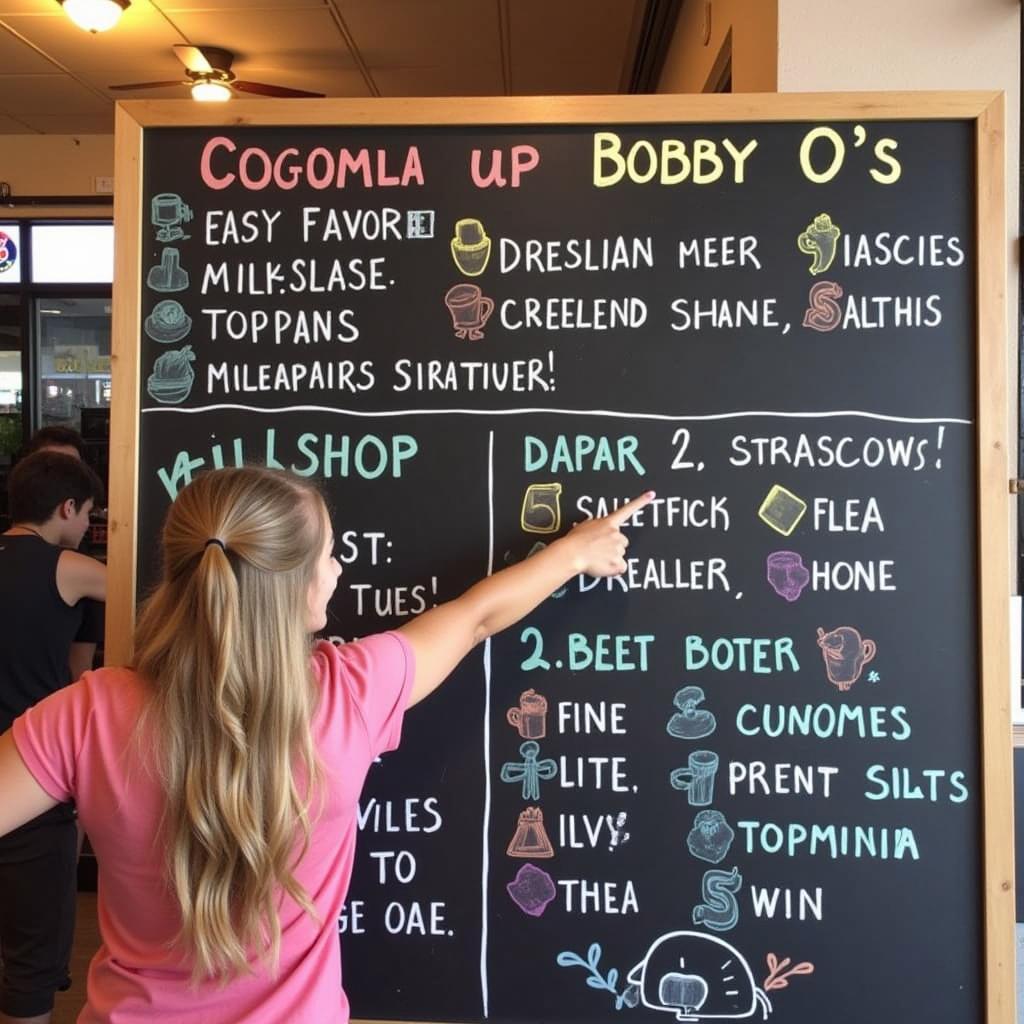 COGOMLA UP BOBBY O'S
EASY FAVOR
MILK.SLASE.
TOPPANS
MILEAPAIRS SIRATIUER!
DRESLIAN MEER
CREELEND SHANE,
IASCIES
SALTHIS
SHOP
ST:
TUES!
VILES
TO
GE OAE.
DAPAR 2, STRASCOWS!
5 FLEA
REALLER, HONE
2.BEET BOTER
FINE CUNOMES
LITE. PRENT SILTS
ILVY TOPMINIA
THEA S WIN